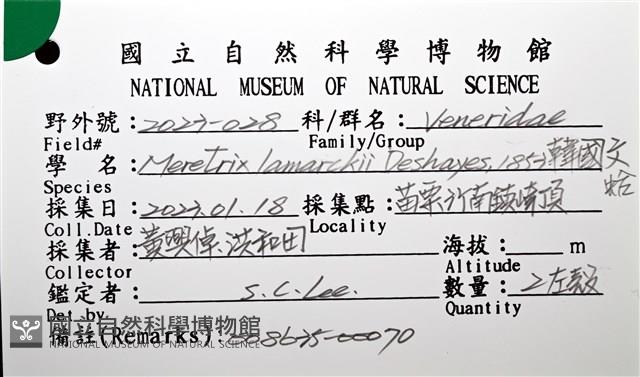 國立自然科學博物館
NATIONAL MUSEUM OF NATURAL SCIENCE
野外號：2023-028 科/群名：Veneridae
Field# Family/Group
學 名：Meretrix lamarckii Deshayes, 1853 韓國文蛤
Species
採集日：2023.01.18 採集點：苗栗竹南鎮崎頂
Coll.Date Locality
採集者：黃興倬、洪和田 海拔： m
Collector Altitude
鑑定者： S.C.Lee. 數量：2左殼
Det.by Quantity
備註(Remarks)：008635-00070
國立自然科學博物館
NATIONAL MUSEUM OF NATURAL SCIENCE